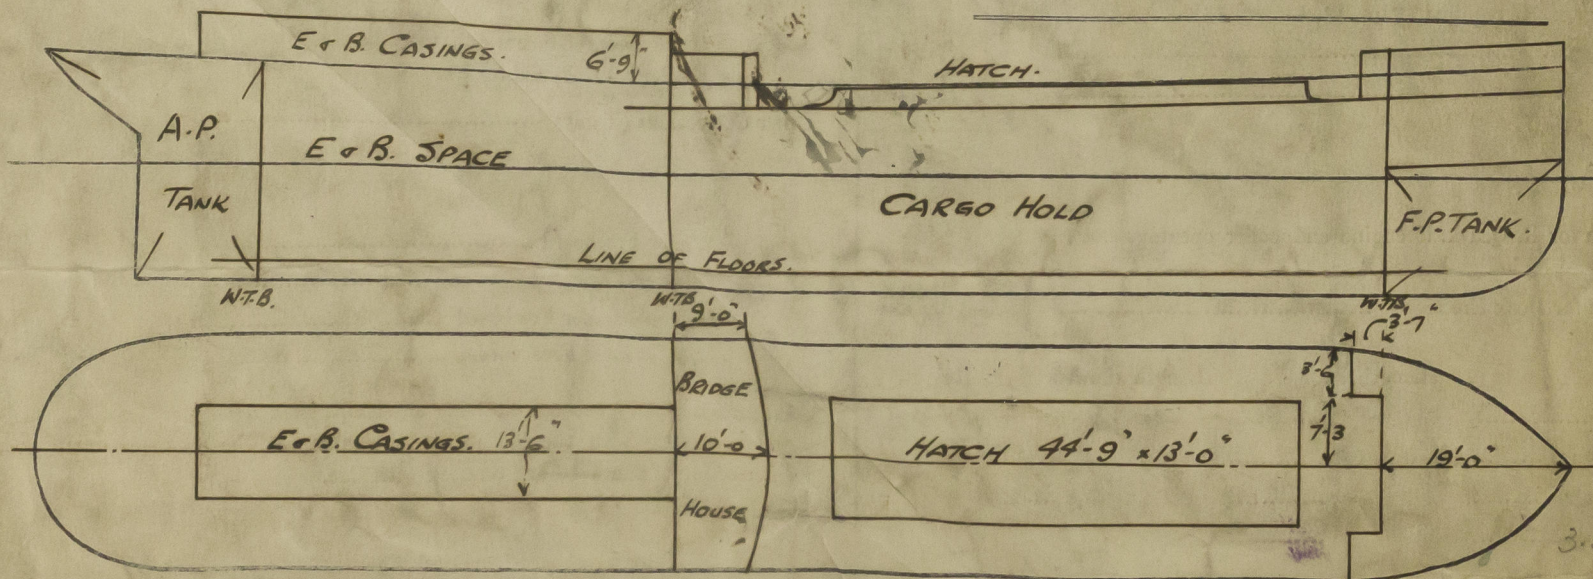 E & B. CASINGS.
6'-9"
HATCH.
A.P.
TANK
E & B. SPACE
CARGO HOLD
F.P. TANK.
LINE OF FLOORS.
W.T.B.
W.T.B.
W.T.B.
9'-0"
3'-7"
BRIDGE
HOUSE
10'-0
E & B. CASINGS. 13'-6"
HATCH 44'-9" x 13'-0"
7'-3
19'-0"